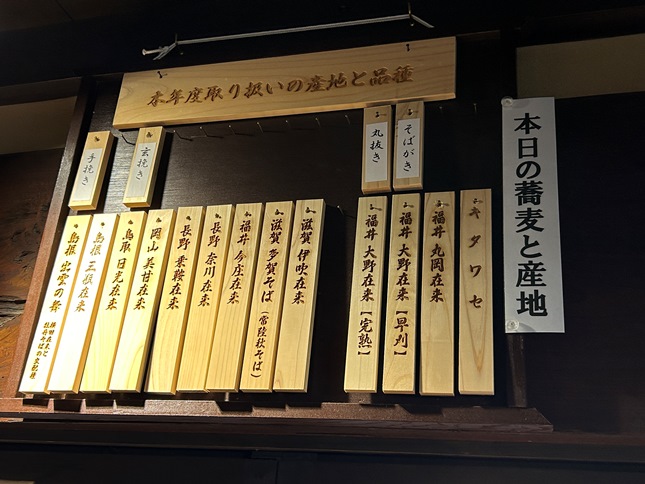 本年度取り扱いの産地と品種
本日の蕎麦と産地
そばがき
丸抜き
玄挽き
手挽き
キタワセ
福井 丸岡在来
福井 大野在来【早刈】
福井 大野在来【完熟】
滋賀 伊吹在来
滋賀 多賀そば(常陸秋そば)
福井 今庄在来
長野 奈川在来
長野 乗鞍在来
岡山 美甘在来
鳥取 日光在来
島根 三瓶在来
島根 出雲の舞
横田在来と
牡丹そばの交配種